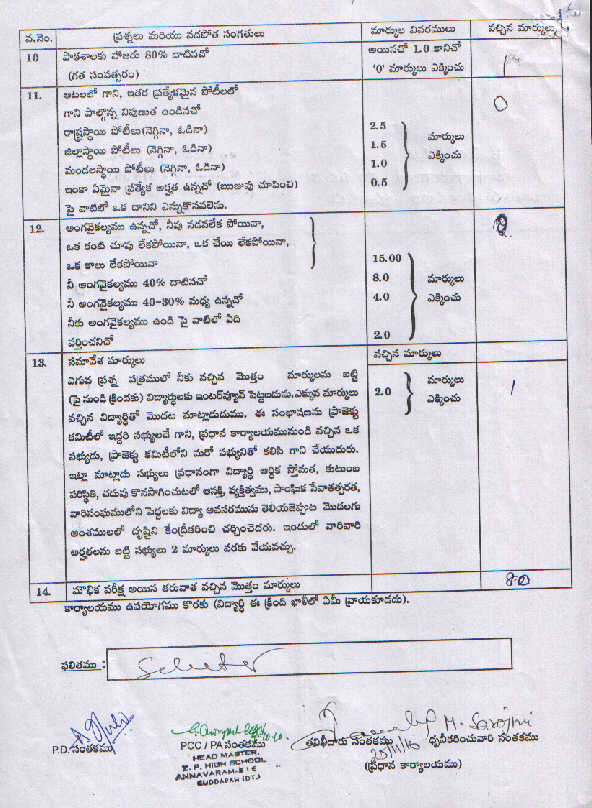 వ.నెం. ప్రశ్నలు మరియు వడపోత సంగతులు మార్కుల వివరములు వచ్చిన మార్కులు
10 పాఠశాలకు హాజరు 80% దాటినచో అయినచో 1.0 కానిచో 1
(గత సంవత్సరం) '0' మార్కులు ఎక్కించు
11. ఆటలలో గాని, ఇతర ప్రత్యేకమైన పోటీలలో 0
గాని పాల్గొన్న నిపుణుత ఉండినచో
రాష్ట్రస్థాయి పోటీలు(నెగ్గినా, ఓడినా) 2.5 మార్కులు
జిల్లాస్థాయి పోటీలు (నెగ్గినా, ఓడినా) 1.5 ఎక్కించు
మండలస్థాయి పోటీలు (నెగ్గినా, ఓడినా) 1.0
ఇంకా ఏమైనా ప్రత్యేక అర్హత ఉన్నచో (ఋజువు చూపించి) 0.5
పై వాటిలో ఒక దానిని ఎన్నుకొనవలెను.
12. అంగవైకల్యము ఉన్నచో, నీవు నడవలేక పోయినా,
ఒక కంటి చూపు లేకపోయినా, ఒక చేయి లేకపోయినా,
ఒక కాలు లేకపోయినా 15.00
నీ అంగవైకల్యము 40% దాటినచో 8.0 మార్కులు
నీ అంగవైకల్యము 40-30% మధ్య ఉన్నచో 4.0 ఎక్కించు
నీకు అంగవైకల్యము ఉండి పై వాటిలో ఏది
వర్తించనిచో 2.0
13. సమావేశ మార్కులు వచ్చిన మార్కులు
ఎగువ ప్రశ్న పత్రములో నీకు వచ్చిన మొత్తం మార్కులను బట్టి మార్కులు
(పై నుండి క్రిందకు) విద్యార్థులకు ఇంటర్‌వ్యూవ్ పెట్టబడును.ఎక్కువ మార్కులు 2.0 ఎక్కించు 1
వచ్చిన విద్యార్థితో మొదట మాట్లాడుదుము. ఈ సంభాషణను ప్రాజెక్టు
కమిటీలో ఇద్దరి సభ్యులచే గాని, ప్రధాన కార్యాలయమునుండి వచ్చిన ఒక
సభ్యుడు, ప్రాజెక్టు కమిటీలోని మరో సభ్యునితో కలిసి గాని చేయుదురు.
ఇట్లా మాట్లాడు సభ్యులు ప్రధానంగా విద్యార్థి ఆర్థిక స్తోమత, కుటుంబ
పరిస్థితి, చదువు కొనసాగించుటలో ఆసక్తి, వ్యక్తిత్వము, సాంఘిక సేవాతత్పరత,
వారిసంఘములోని పెద్దలకు విద్యా అవసరమును తెలియజెప్పుట మొదలగు
అంశములలో దృష్టిని కేంద్రీకరించి చర్చించెదరు. ఇందులో వారివారి
అర్హతలను బట్టి సభ్యులు 2 మార్కులు వరకు వేయవచ్చు.
14. మౌఖిక పరీక్ష అయిన తరువాత వచ్చిన మొత్తం మార్కులు 80
కార్యాలయము ఉపయోగము కొరకు (విద్యార్థి ఈ క్రింద ఖాళీలో ఏమీ వ్రాయకూడదు).
ఫలితము :
M. Sarojini
P.D.సంతకము PCC / PA సంతకము తనిఖీదారు సంతకము ధృవీకరించువారి సంతకము
HEAD MASTER, (ప్రధాన కార్యాలయము)
Z. P. HIGH SCHOOL
ANNAVARAM-516
CUDDAPAH (DT.)